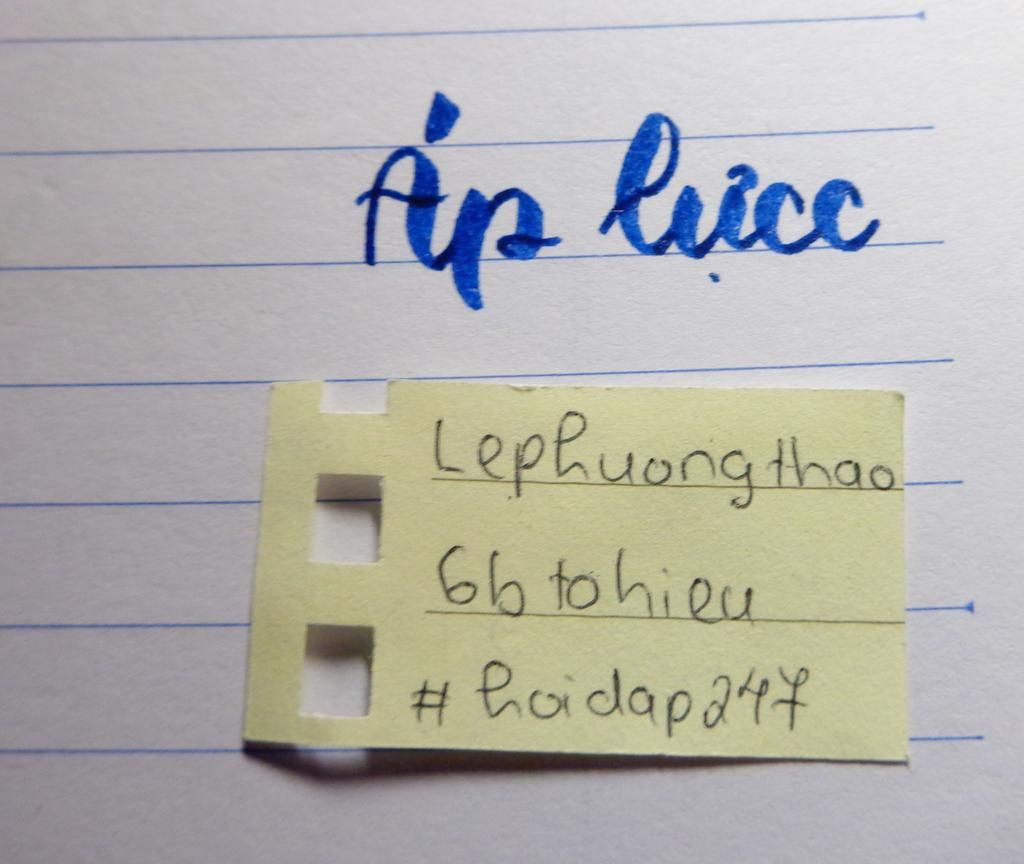 Áp lựcc
Lephuongthao
6b tohieu
#hoidap247